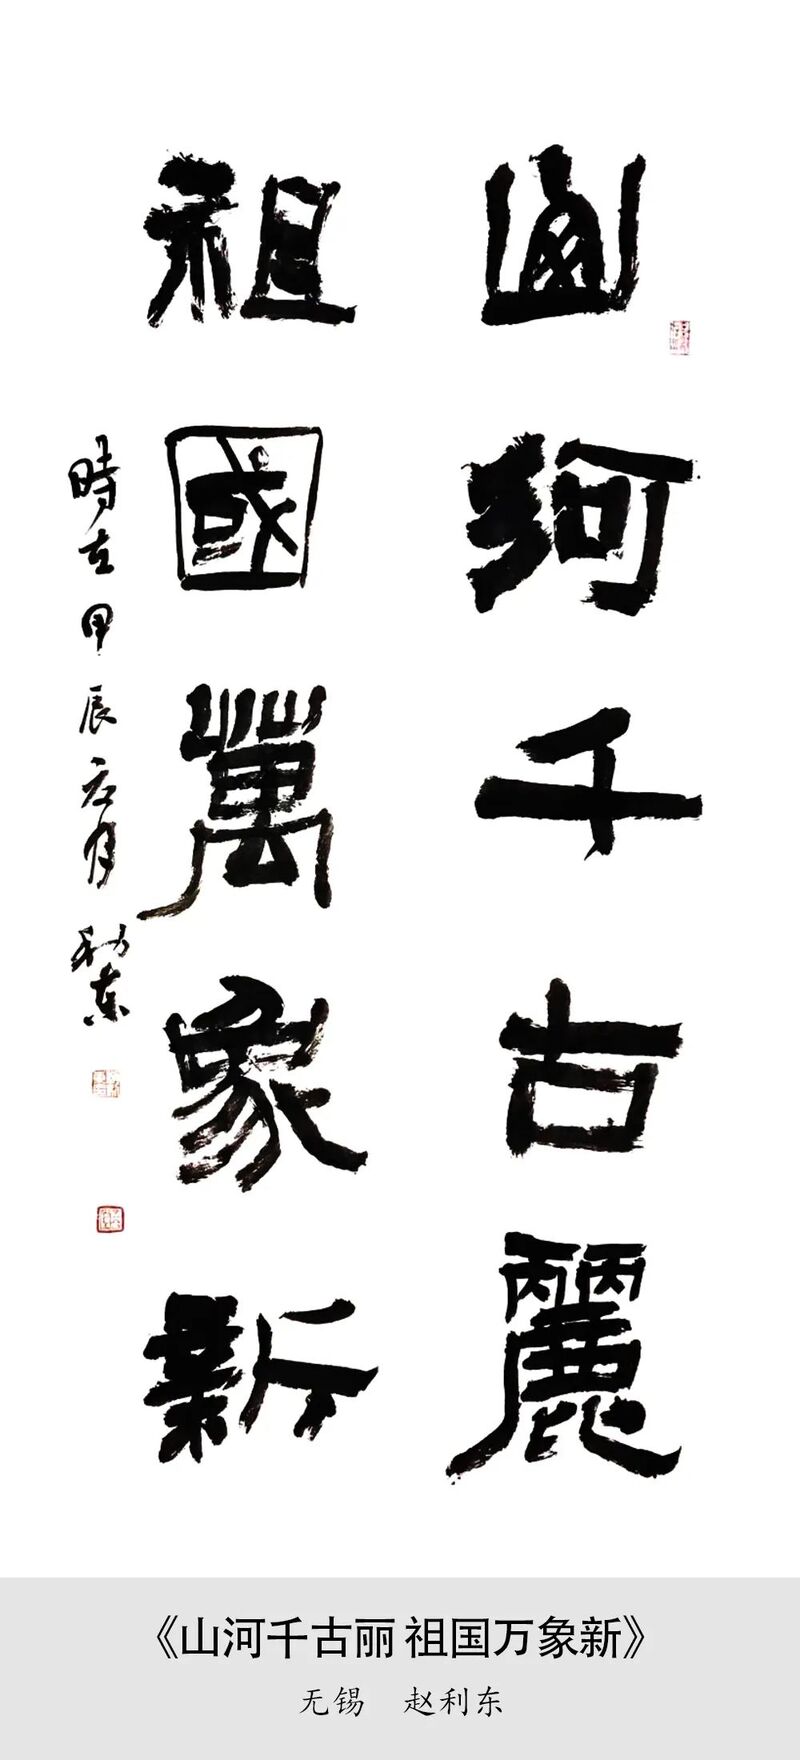 山河千古麗
祖國萬象新
時在甲辰月利東
《山河千古丽 祖国万象新》
无锡 赵利东